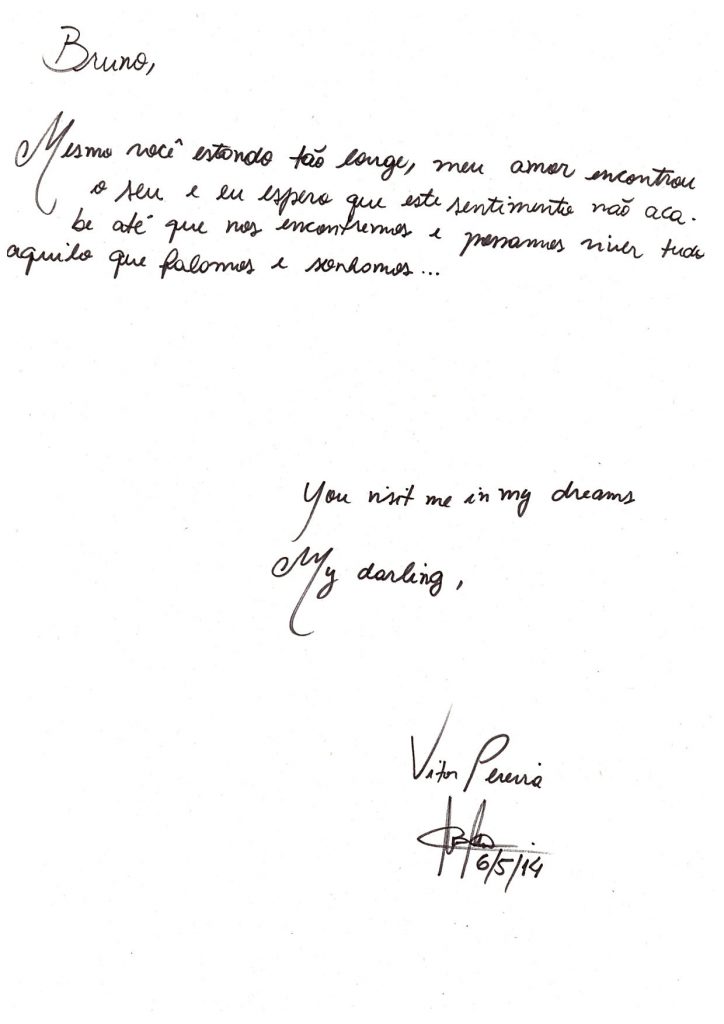 Bruno,
Mesmo você estando tão longe, meu amor encontrou
o seu e eu espero que este sentimento não aca-
be até que nos encontremos e possamos viver tudo
aquilo que falamos e sonhamos...
You visit me in my dreams
My darling,
Vitor Pereira
6/5/14